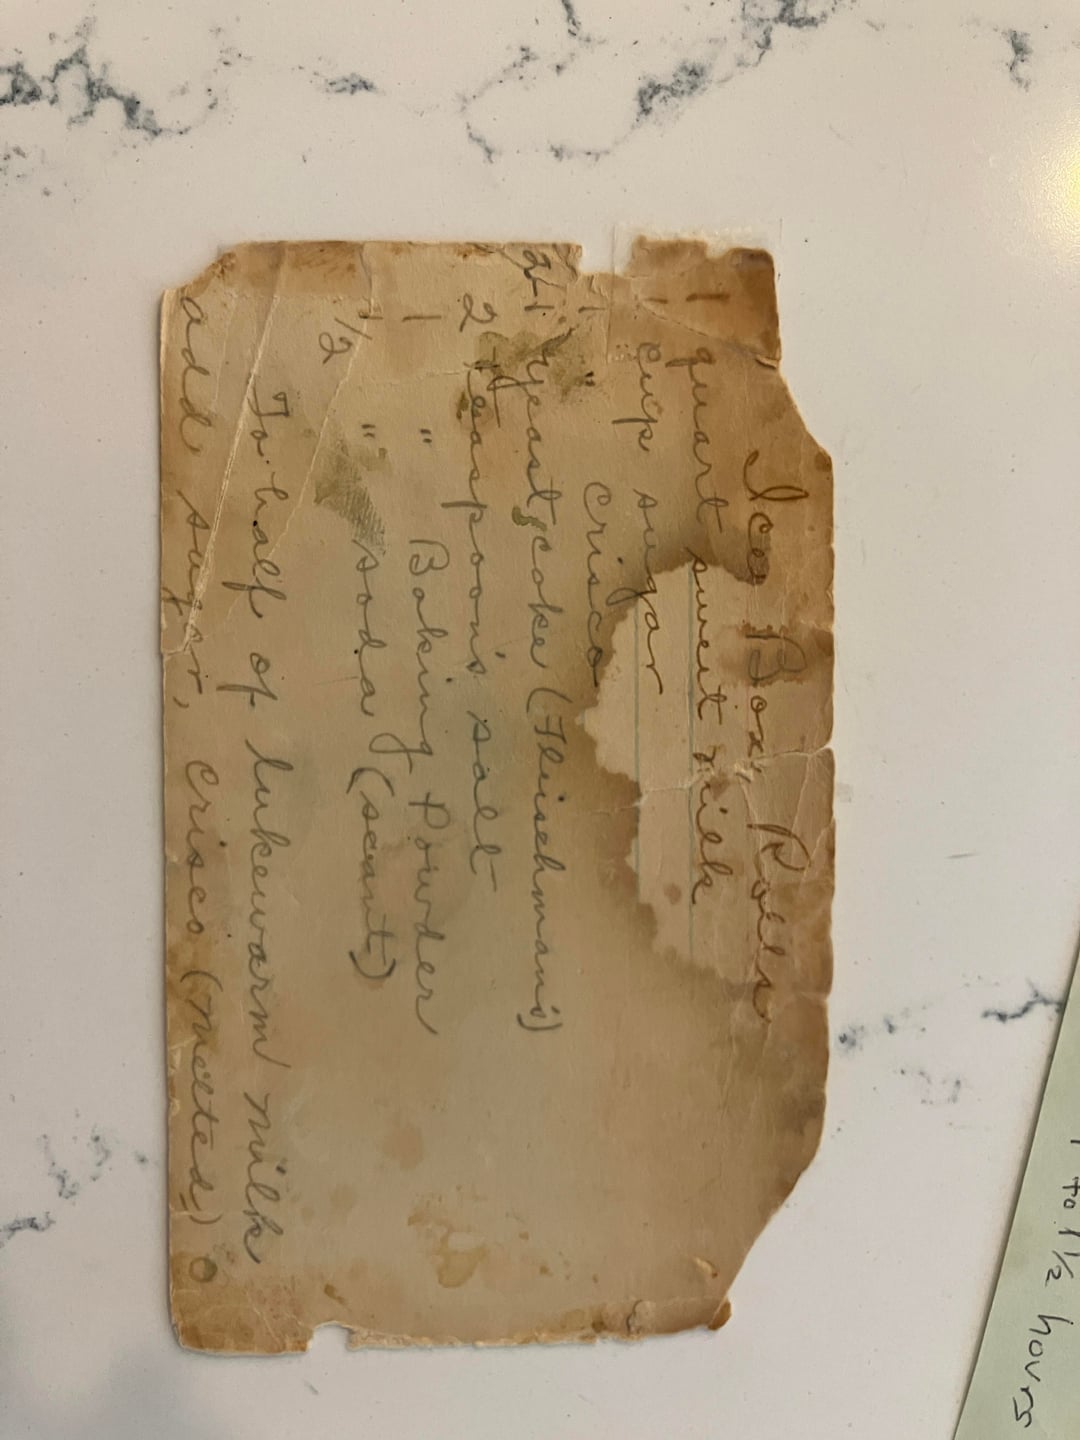 "Ice Box" Rolls
1 quart sweet milk
1 cup sugar
1 " Crisco
2 yeast cake (Fleischman's)
2 teaspoons salt
1 " Baking Powder
1/2 " soda (scant)
To half of lukewarm milk
add sugar, Crisco (melted)
1 to 1 1/2 hours